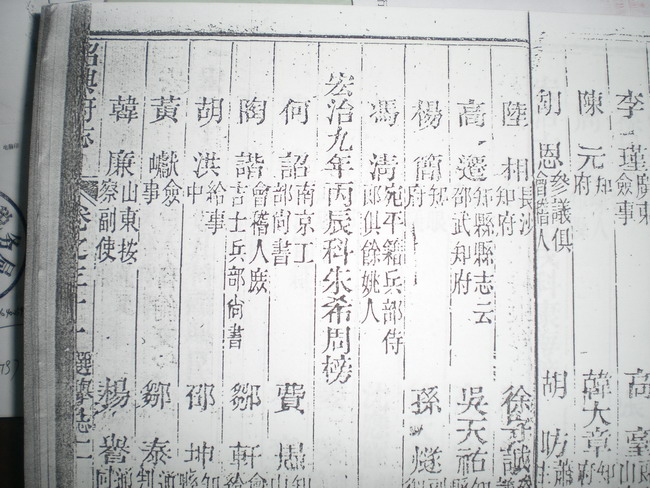 李瑾 廣東僉事 高
陳元 知府 韓大章 知
胡恩 參議俱會稽人 胡昉 蕭
陸相 長沙知府 徐守誠
高遷 知縣縣志云邵武知府 吳天祐 知
楊簡 知府 孫燧 副
馮清 宛平籍兵部侍郎俱餘姚人
宏治九年丙辰科朱希周榜
何詔 南京工部尚書 費愚
陶諧 會稽人庶吉士兵部尚書 鄒軒
胡洪 給事中 邵坤 知
黃巘 僉事 鄒泰
韓廉 山東按察副使 楊譽
紹興府志 卷之三十一 選舉志二